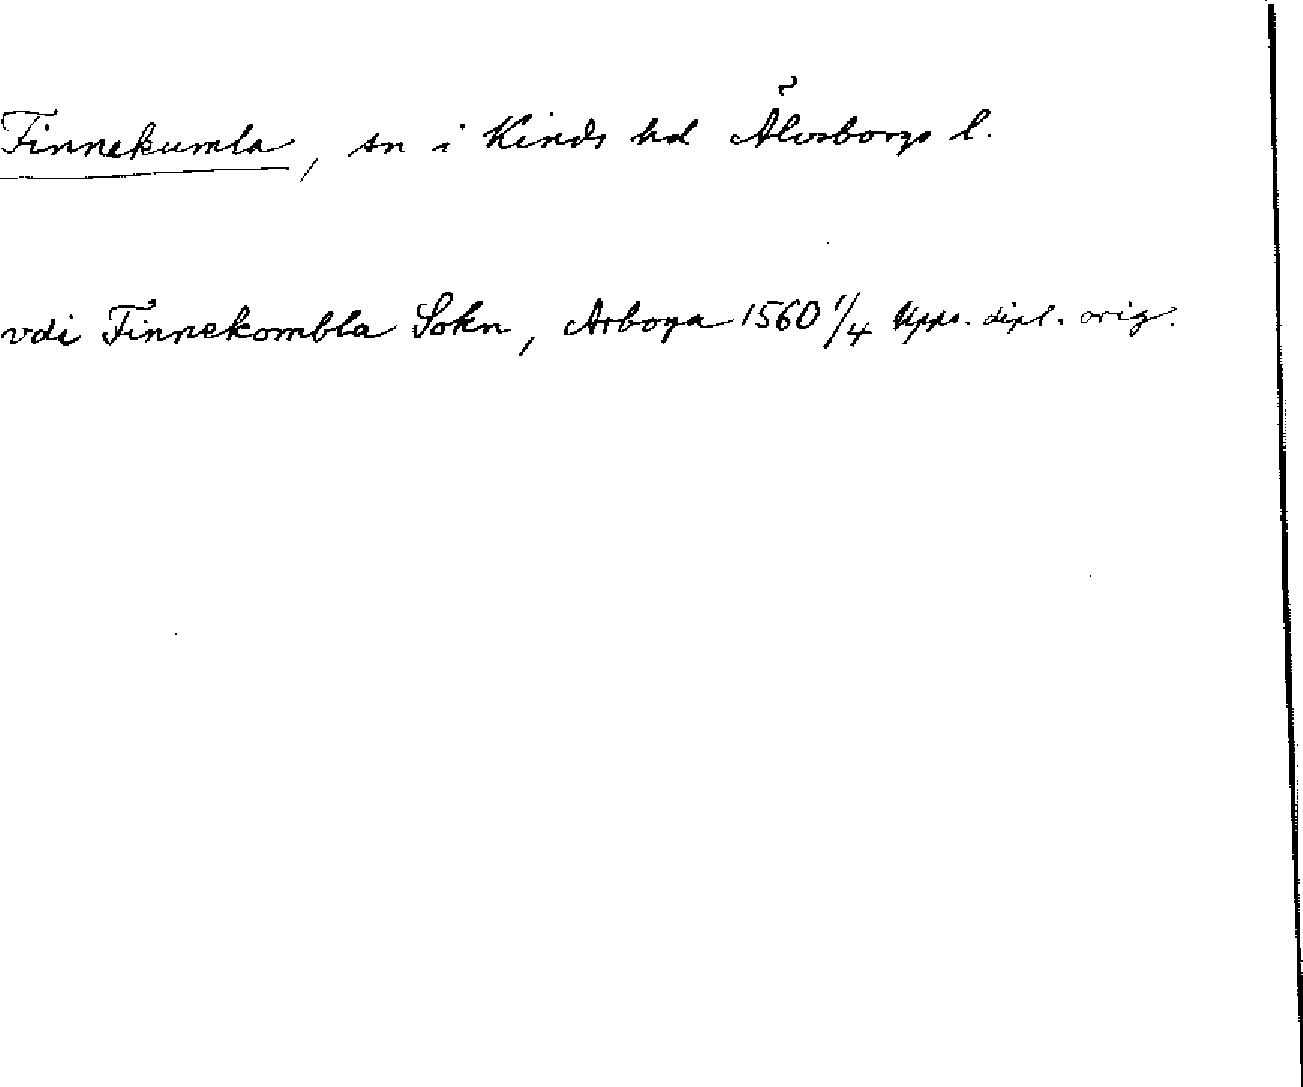 Finnekumla, sn i Kinds hd Älvsborgs l.
vdi Finnekombla Sokn, Arboga 1560 1/4 Upps. dipl. orig.